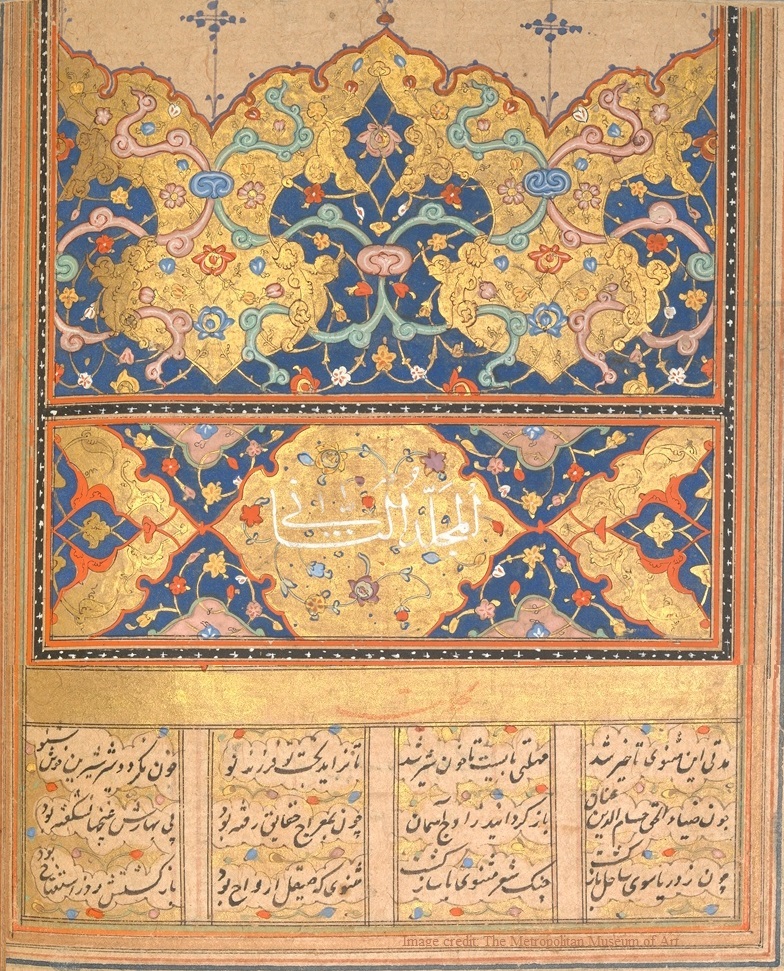 المجلّد الثانی
مدتی این مثنوی تاخیر شد مهلتی بایست تا خون شیر شد تا نزاید بخت تو فرزند نو خون نگردد شیر شیرین خوش شنو
چون ضیاء الحق حسام الدین عنان باز گردانید ز اوج آسمان چون بمعراج حقایق رفته بود بی بهارش غنچها نشکفته بود
چون ز دریا سوی ساحل باز گشت چنگ شعر مثنوی با ساز گشت مثنوی که صیقل ارواح بود باز گشتش روز استفتاح بود
Image credit: The Metropolitan Museum of Art